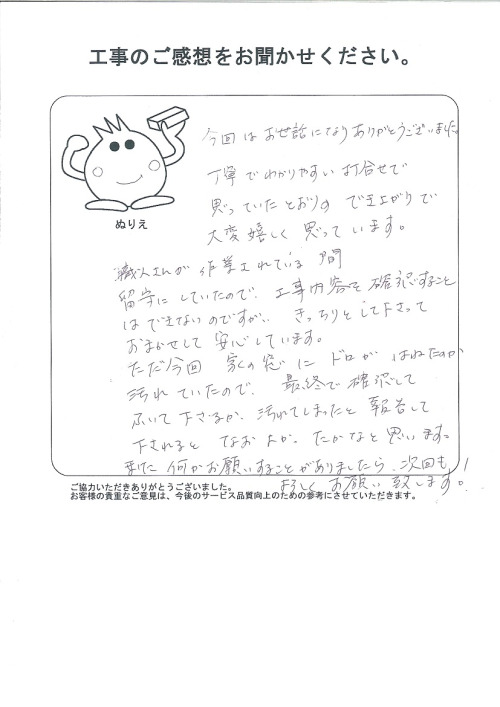 工事のご感想をお聞かせください。
今回はお世話になりありがとうございました。
丁寧でわかりやすい打合せで
思っていたとおりの でき上がりで
大変嬉しく思っています。
ぬりえ
職人さんが 作業されている 間
留守にしていたので、工事内容を確認すること
はできないのですが、きっちりとして下さって
おまかせして 安心しています。
ただ今回 家の窓に ドロが はねたのか
汚れていたので、 最終で確認して
ふいて下さるか、汚れてしまったと 報告して
下されると なおよかったかなと思います。
また 何かお願いすることがありましたら、次回も
よろしく お願い致します!
ご協力いただきありがとうございました。
お客様の貴重なご意見は、今後のサービス品質向上のための参考にさせていただきます。